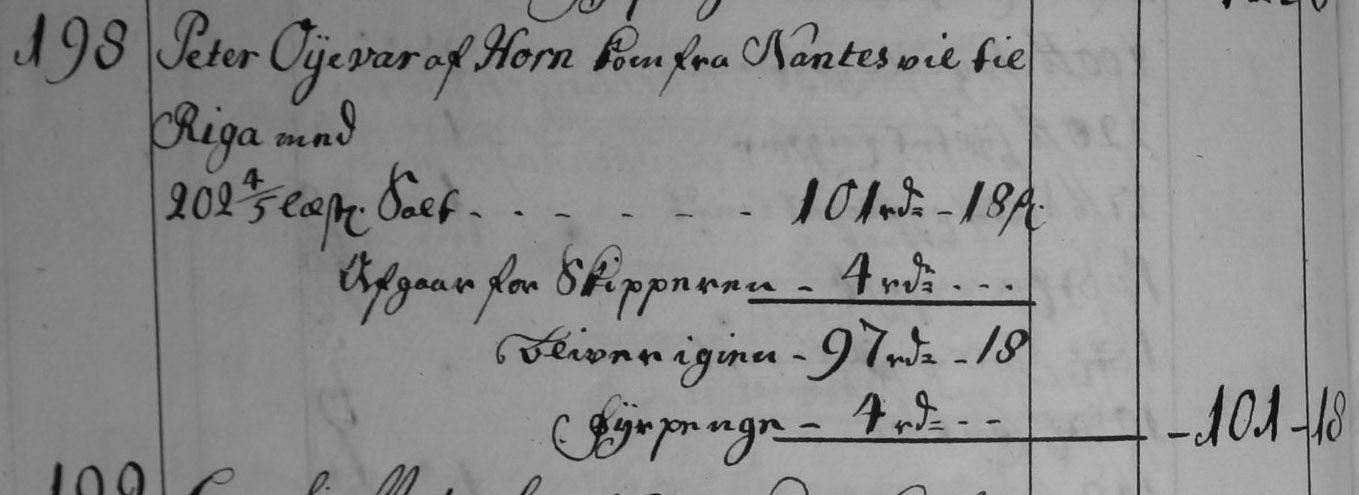 198 Peter Oÿevar af Horn kom fra Nantes vil til
Riga med
202 4/5 læster Salt - - - - - - 101 rd - 18 ß
Afgaar for Skipperen - 4 rd - - -
Bliver igien - 97 rd - 18
Fÿrpenge - 4 rd - - - 101 - 18
199